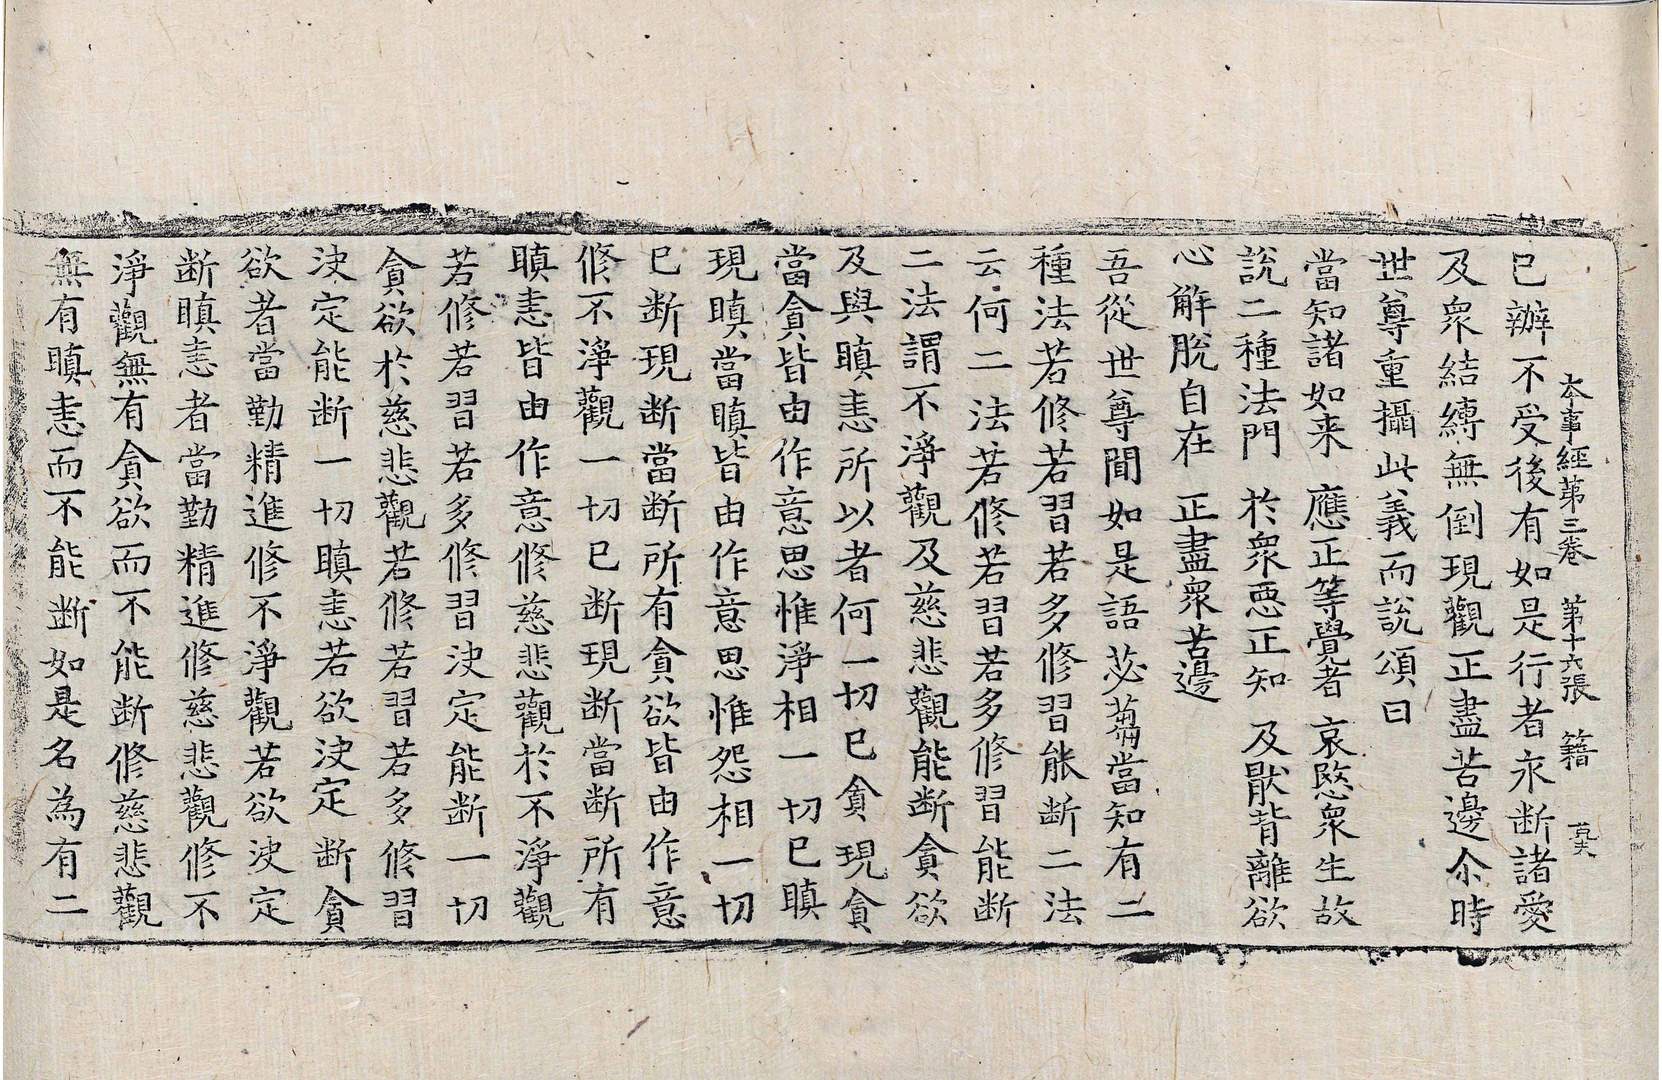 本事經第三卷 第十六張 籍
已辦不受後有如是行者永断諸愛
及衆結縛無倒現觀正盡苦邊尒時
世尊重攝此義而說頌曰
當知諸如来 應正等覺者 哀愍衆生故
說二種法門 於衆惡正知 及猒背離欲
心解脫自在 正盡衆苦邊
吾從世尊聞如是語苾蒭當知有二
種法若修若習若多修習能断二法
云何二法若修若習若多修習能断
二法謂不淨觀及慈悲觀能断貪欲
及與瞋恚所以者何一切已貪現貪
當貪皆由作意思惟淨相一切已瞋
現瞋當瞋皆由作意思惟怨相一切
已断現断當断所有貪欲皆由作意
修不淨觀一切已断現断當断所有
瞋恚皆由作意修慈悲觀於不淨觀
若修若習若多修習决定能断一切
貪欲於慈悲觀若修若習若多修習
决定能断一切瞋恚若欲决定断貪
欲者當勤精進修不淨觀若欲决定
断瞋恚者當勤精進修慈悲觀修不
淨觀無有貪欲而不能断修慈悲觀
無有瞋恚而不能断如是名為有二